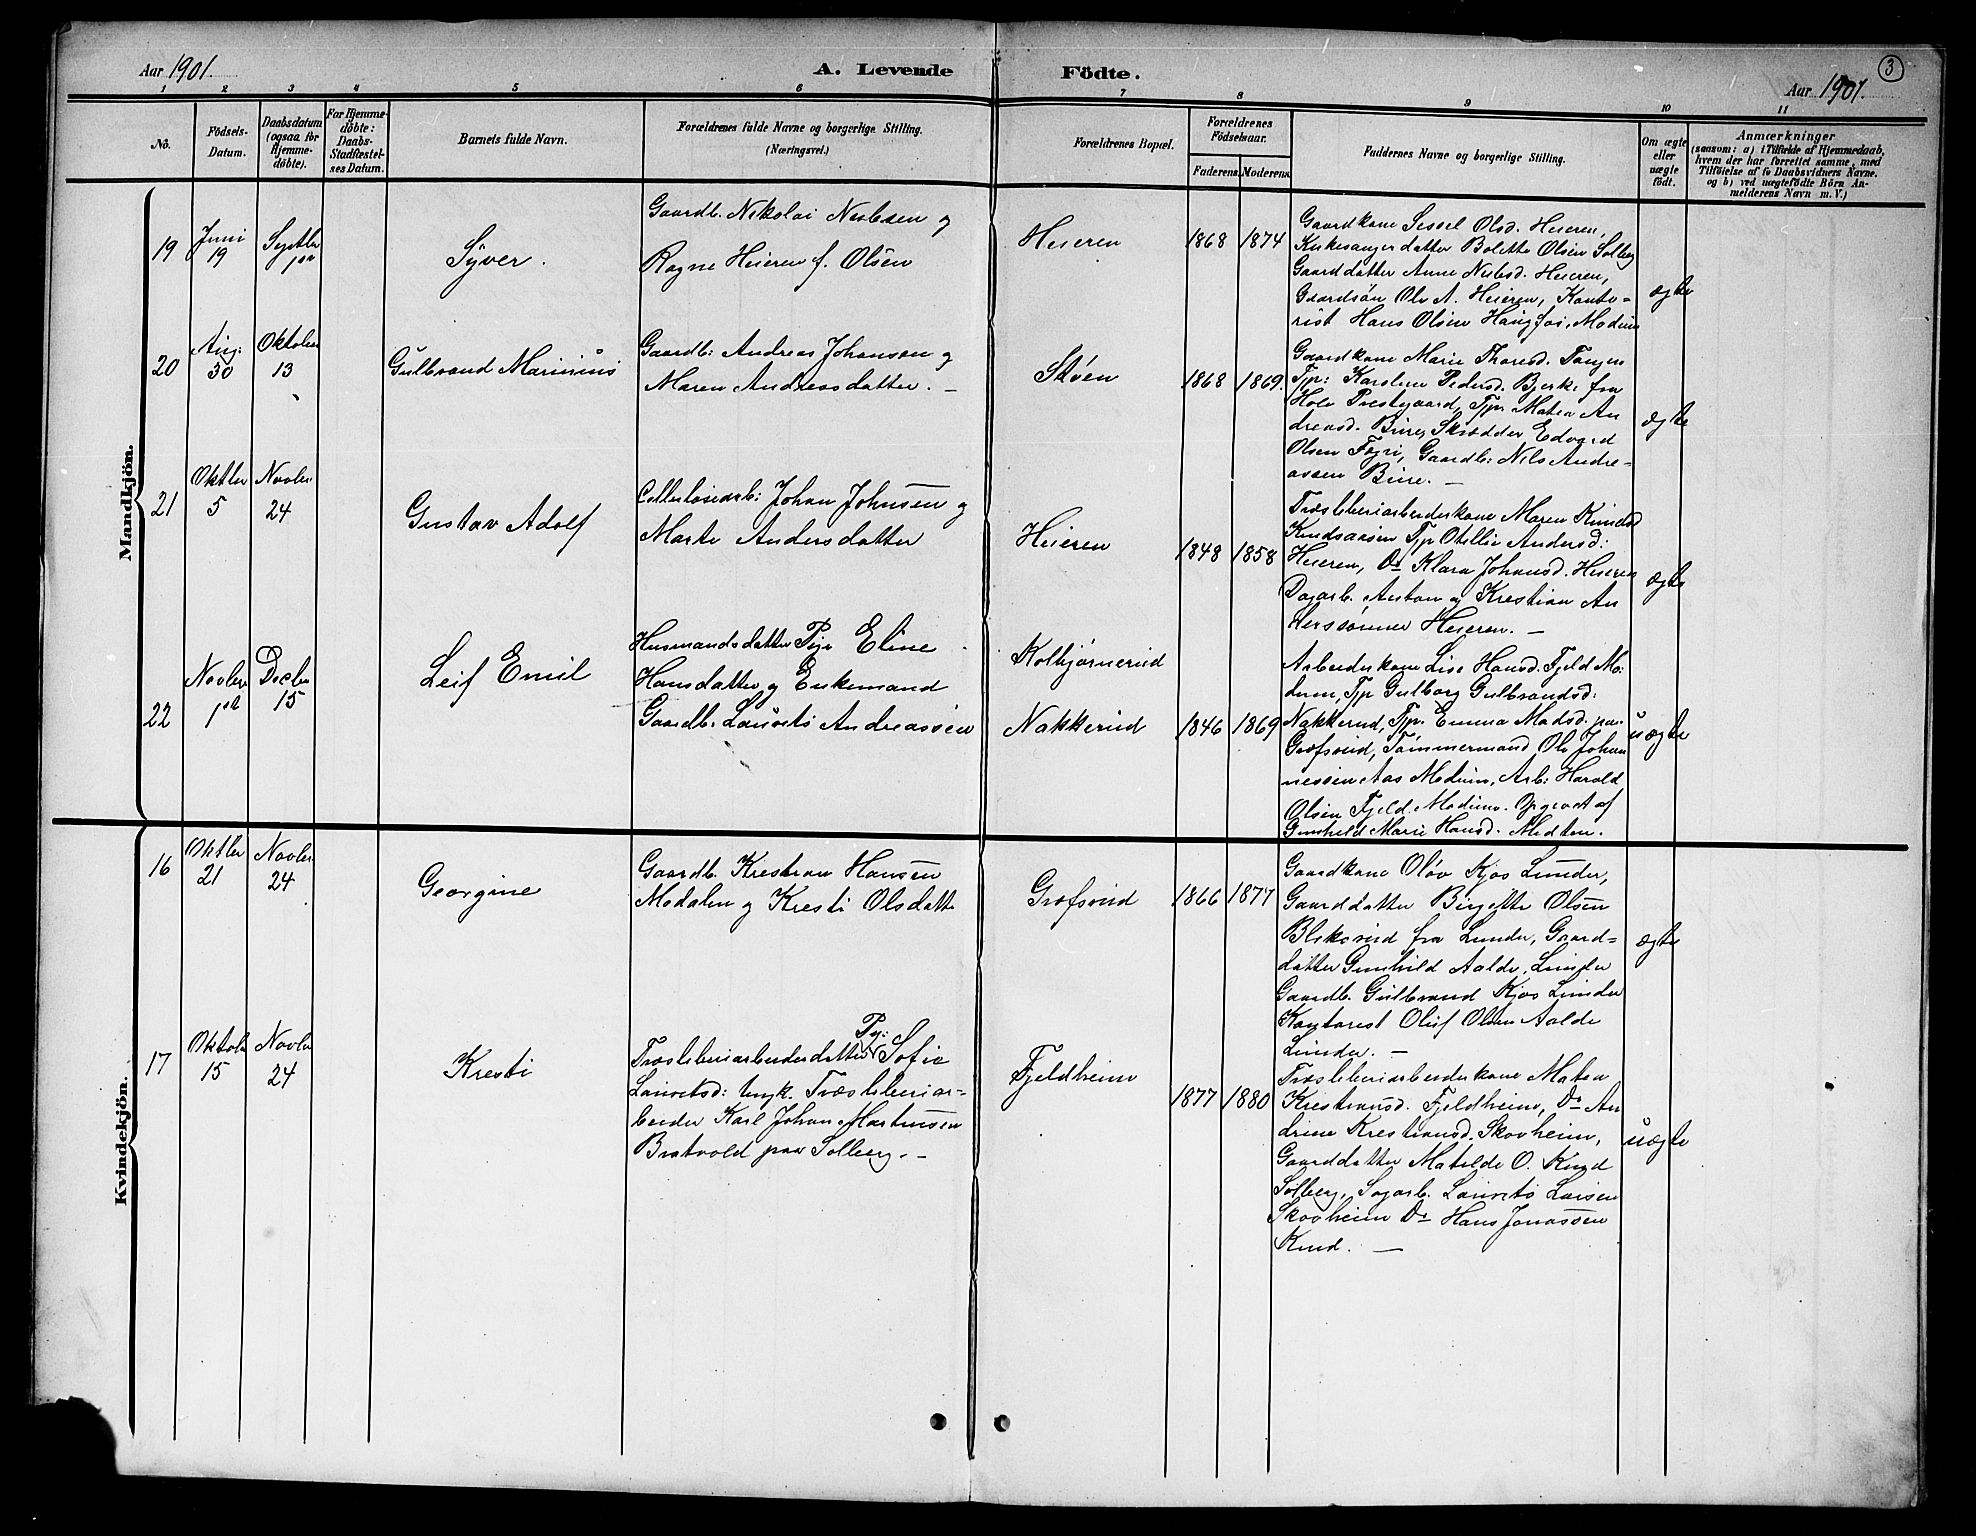 Aar 1901.
A. Levende Födte.
3
Aar 1901.
1 2 3 4 5 6 7 8 9 10 11
No.
Födsels-
Datum.
Daabsdatum
(ogsaa for
Hjemme-
döbte).
For Hjemme-
döbte:
Daabs-
Stadfæstel-
ses Datum.
Barnets fulde Navn.
Forældrenes fulde Navne og borgerlige Stilling.
(Næringsvei.)
Forældrenes Bopæl.
Forældrenes
Födselsaar.
Faderens. Moderens.
Faddernes Navne og borgerlige Stilling.
Om ægte
eller
uægte
födt.
Anmærkninger
(saasom: a) i Tilfælde af Hjemmedaab,
hvem der har forrettet samme, med
Tilföielse af to Daabsvidners Navne.
og b) ved uægtefödte Börn An-
melderens Navn m. V.)
Mandkjön.
19
Juni
19
Septbr
1ste
Syver.
Gaardb. Nikolai Nielsen og
Ragne Heieren f. Olsen
Heieren
1868 1874
Gaardkone Sessel Olsd. Heieren,
Kirkesangerdatter Bolette Olsen Solberg
Gaarddatter Anne Nielsd. Heieren,
Gaardsön Ole A. Heieren, Konto-
rist Hans Olsen Haugfos, Modum
ægte
20
Aug.
30
Oktober
13
Gulbrand Marinius
Gaardb: Andreas Johansen og
Maren Andreasdatter. —
Støen
1868 1869.
Gaardkone Marie Thoresd. Tangen
Tjp: Karoline Pedersd. Bjerke fra
Hole Prestegaard, Tjp. Matea An
dreasd. Bure, Skrædder Edvard
Olsen Fjøri, Gaardb: Nils Andre-
assen Bure. —
ægte
21
Oktbr
5
Novbr
24
Gustav Adolf
Cellulosearb: Johan Johnsen og
Marte Andersdatter
Heieren
1848 1858
Træsliberiarbeiderkone Maren Knudsd
Tjp Otellie Andersd:
Heieren, Do Klara Johansd. Heieren
Dagarb. Anton og Krestian An
derssønner Heieren. —
ægte
22
Novbr
1ste
Decbr
15
Leif Emil
Husmandsdatter Pige Eline
Hansdatter og Enkemand
Gaardb. Laurets Andreassen
Kolbjørnerud
Nakkerud
1846 1869
Arbeiderkone Lise Hansd. Fjeld Mo-
dum, Tjp Gulborg Gulbrandsd:
Nakkerud, Tjp. Emma Madsd. paa
Grøfsrud, Tømmermand Ole Johan
nessen Aas Modum, Arb: Harald
Olsen Fjeld Modum. Opgivet af
Gunhild Marie Hansd.
uægte
Kvindekjön.
16
Oktbr
21
Novbr
24
Georgine
Gaardb. Krestian Hansen
Modalen og Kresti Olsdatter
Grøfsrud
1866 1877
Gaardkone Oløv Kjos Lunder,
Gaarddatter Birgitte Olsen
Bleksrud fra Lunder, Gaard-
datter Gunhild Aalde, Lunder
Gaardb. Gulbrand Kjos Lunder
Kontorist Oluf Olsen Aalde
Lunder. —
ægte
17
Oktober
15
Novbr
24
Kresti
Træsliberiarbeiderdatter Pg: Sofie
Lauretsd: Ungk. Træsliberiar-
beider Karl Johan Martinsen
Bratvold paa Solberg. —
Fjeldheim
1877 1880
Træsliberiarbeiderkone Matea
Krestiansd. Fjeldheim, Do An
drine Krestiansd. Skovheim,
Gaarddatter Matilde O. Krud
Solberg, Sagarb. Laurets Larsen
Skovheim Do Hans Jonassen
Krud. —
uægte